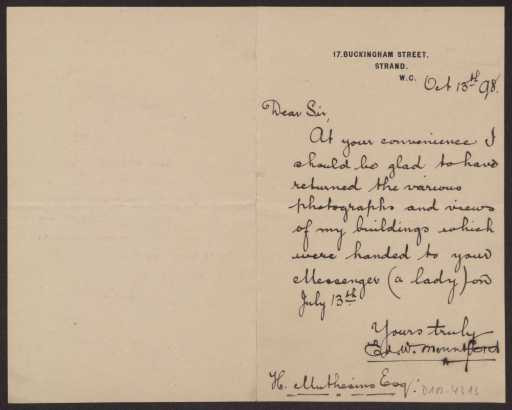 17. BUCKINGHAM STREET.
STRAND.
W.C.
Oct 13th 98.
Dear Sir,
At your convenience I
should be glad to have
returned the various
photographs and views
of my buildings which
were handed to your
Messenger (a lady) on
July 13th
Yours truly
Ed. W. Mountford
H. Muthesius Esq.